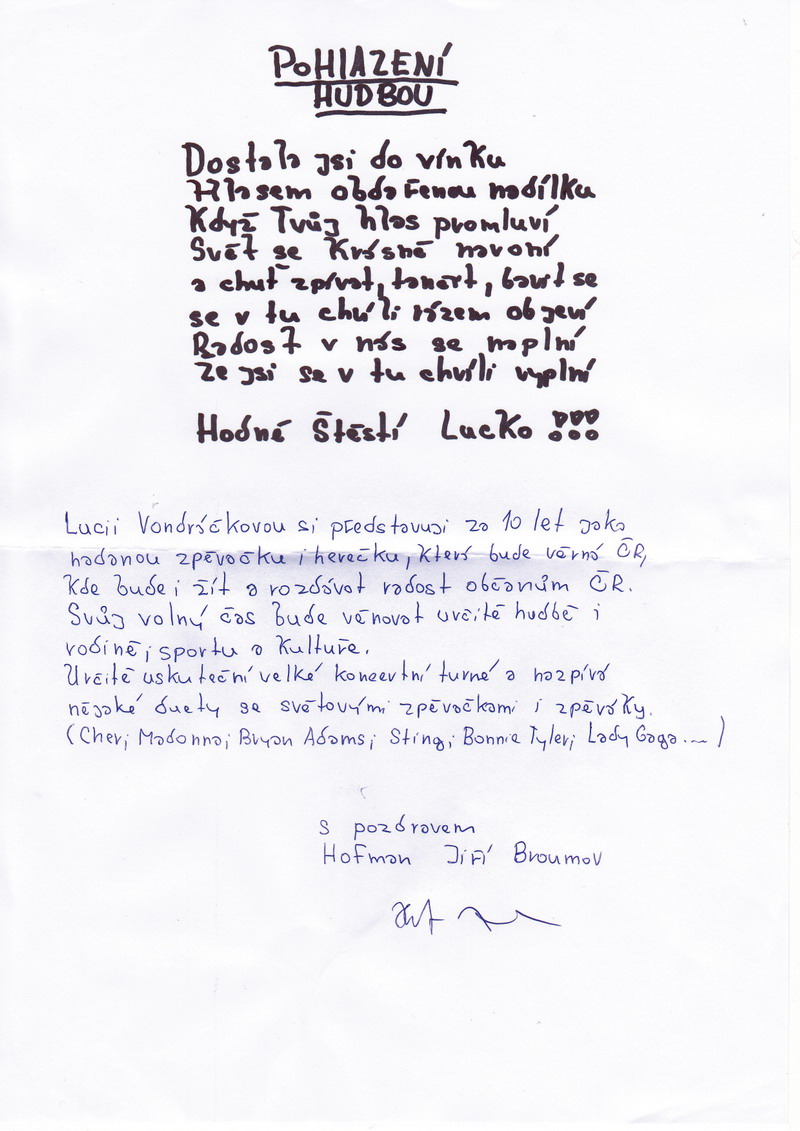 POHLAZENÍ
HUDBOU
Dostala jsi do vínku
Hlasem obdařenou nadílku
Když Tvůj hlas promluví
Svět se krásně navoní
a chuť zpívat, tančit, bavit se
se v tu chvíli rázem objeví
Radost v nás se naplní
že jsi se v tu chvíli vyplní
Hodně štěstí Lucko !!!
Lucii Vondráčkovou si představuji za 10 let jako
nadanou zpěvačku i herečku, která bude věrná ČR,
kde bude i žít a rozdávat radost občanům ČR.
Svůj volný čas bude věnovat určitě hudbě i
rodině, sportu a kultuře.
Určitě uskuteční velké koncertní turné a nazpívá
nějaké duety se světovými zpěvačkami i zpěváky.
(Cher, Madonna, Bryan Adams, Sting, Bonnie Tyler, Lady Gaga ...)
S pozdravem
Hofman Jiří Broumov